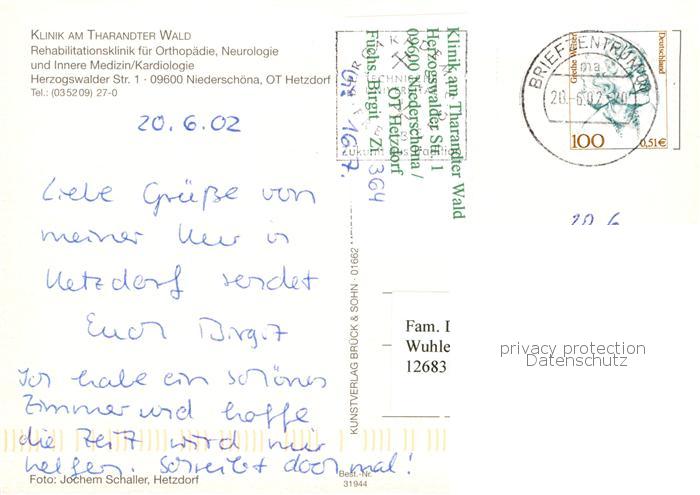 KLINIK AM THARANDTER WALD
Rehabilitationsklinik für Orthopädie, Neurologie
und Innere Medizin/Kardiologie
Herzogswalder Str. 1 · 09600 Niederschöna, OT Hetzdorf
Tel.: (03 52 09) 27-0
20.6.02
Liebe Grüße von
meiner Kur in
Hetzdorf sendet
Euch Birgit
Ich habe ein schönes
Zimmer und hoffe
die Zeit wird mir
helfen. Schreibt doch mal!
Foto: Jochem Schaller, Hetzdorf
Best.-Nr.
31944
KUNSTVERLAG BRÜCK & SOHN · 01662
Klinik am Tharandter Wald
Herzogswalder Str. 1
09600 Niederschöna /
OT Hetzdorf
Fuchs Birgit Zi
364
16.7.
BRIEFZENTRUM
ma
20.-6.02-20
Grethe Weiser
Deutschland
100
0,51€
20 6
Fam. I
Wuhle
12683
privacy protection
Datenschutz